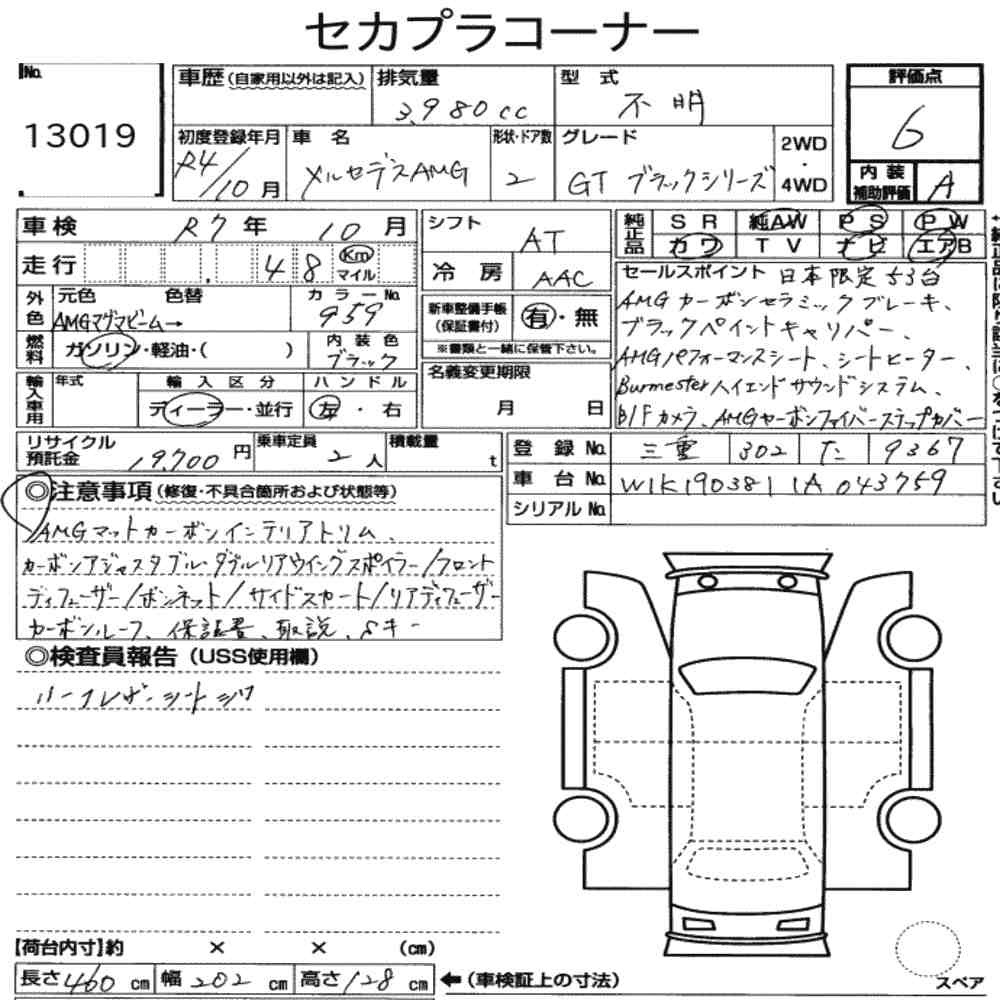 セカプラコーナー
No. 13019
車歴 (自家用以外は記入)
排気量 3,980cc
型式 不明
評価点 6
初度登録年月 R4/10月
車名 メルセデスAMG
形状・ドア数 2
グレード GT ブラックシリーズ
2WD・4WD
内装補助評価 A
車検 R7年 10月
シフト AT
純正品 SR 純AW PS PW
カワ TV ナビ エアB
走行 48 Km マイル
冷房 AAC
セールスポイント 日本限定53台
AMGカーボンセラミックブレーキ、
ブラックペイントキャリパー、
AMGパフォーマンスシート、シートヒーター、
Burmesterハイエンドサウンドシステム、
B/Fカメラ、AMGカーボンファイバーステップカバー
外色 元色 色替 カラーNo.
AMGマグマビーム→ 959
新車整備手帳(保証書付) 有・無
※書類と一緒に保管下さい。
燃料 ガソリン・軽油・( )
内装色 ブラック
名義変更期限 月 日
輸入車用 年式 輸入区分 ハンドル
ディーラー・並行 左・右
リサイクル預託金 19,700円
乗車定員 2人
積載量 t
登録No. 三重 302 た 9367
車台No. W1K1903811A043759
シリアルNo.
◎注意事項 (修復・不具合箇所および状態等)
AMGマットカーボンインテリアトリム、
カーボンアジャスタブル・ダブルリアウイングスポイラー/フロント
ディフューザー/ボンネット/サイドスカート/リアディフューザー
カーボンルーフ、保証書、取説、Sキー
◎検査員報告 (USS使用欄)
ハーフレザーシートシワ
【荷台内寸】約 × × (cm)
長さ460cm 幅202cm 高さ128cm ←(車検証上の寸法)
スペア